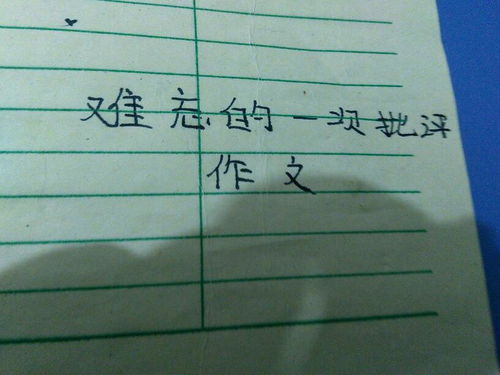 难忘的一项批评
作文